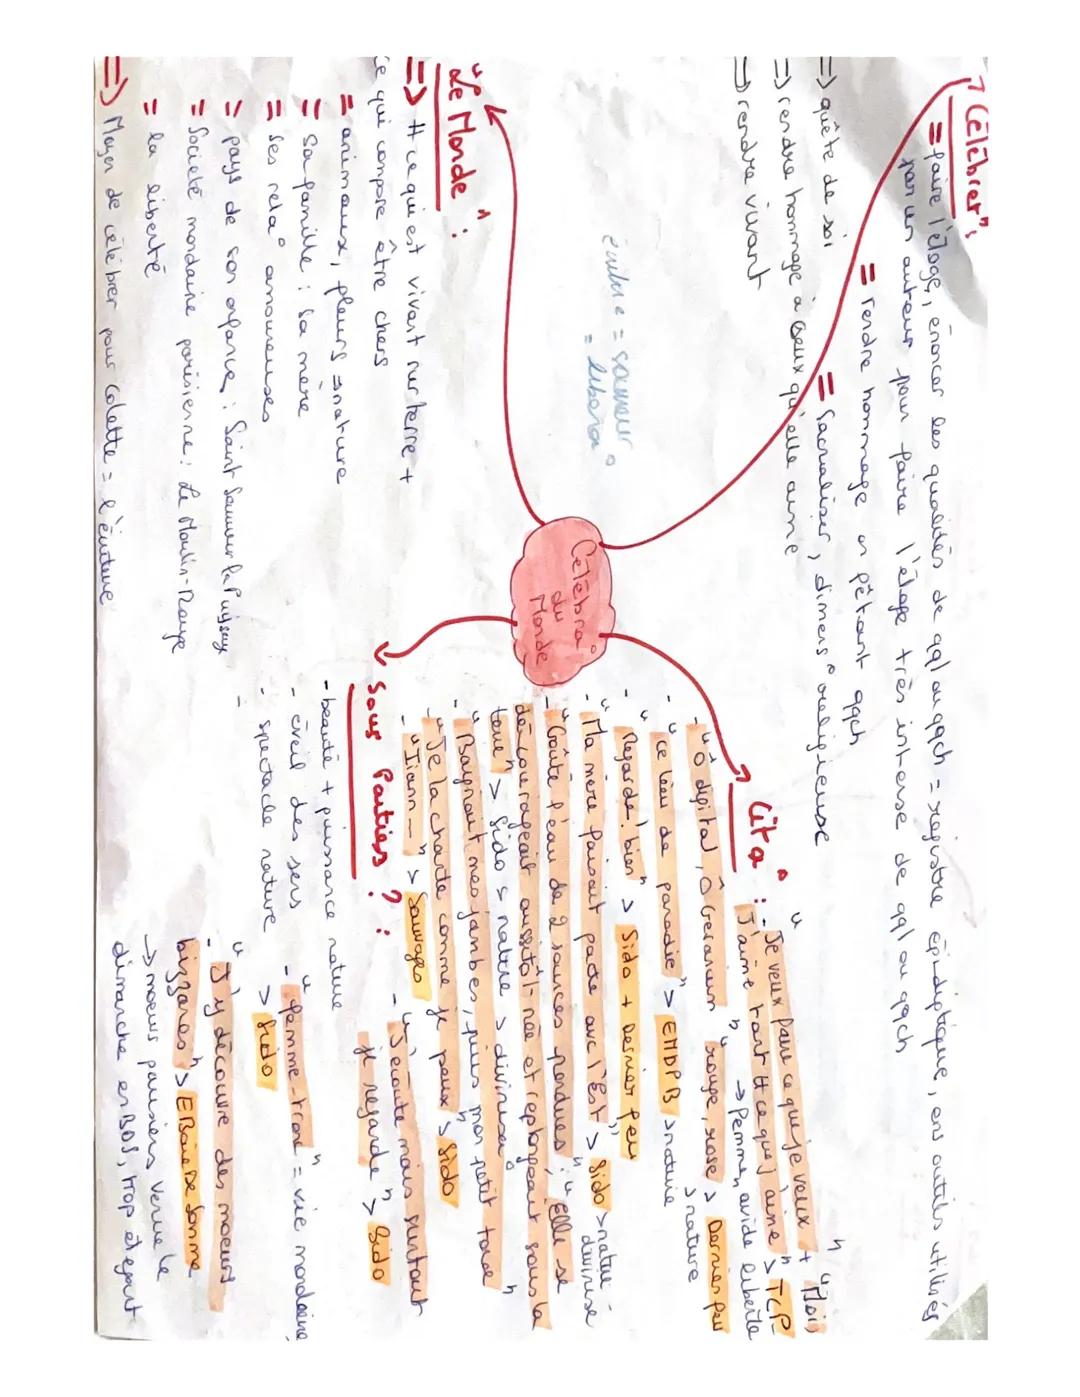 "Célébrer":
= faire l'éloge, énoncer les qualités de qql ou qqch = registre épidiptique, ens outils utilisés
par un auteur pour faire l'éloge très intense de qql ou qqch
= rendre hommage en fêtant qqch
= Sacraliser, dimens° religieuse
=> quête de soi
=> rendre hommage à ceux qu'elle aime
=> rendre vivant
écriture = sauveur
= libéra°
Célébra°
du
Monde
"Le Monde":
=> tt ce qui est vivant sur terre +
ce qui compose être chers
= animaux, fleurs => nature
= sa famille : sa mère
= ses rela° amoureuses
= pays de son enfance : Saint Sauveur la Puisaye
= Société mondaine parisienne : Le Moulin-Rouge
= la liberté
=> Moyen de célébrer pour Colette = l'écriture
Cita° :
- "Je veux faire ce que je veux" + "Mois
J'aime tant tt ce que j'aime" > TCP
-> femme avide liberté
- "Ô digital, Ô Geranium" "rouge, rose > Dernier feu
> nature
- "ce lieu de paradis" > EMDPB > nature
- "Regarde! bien" > Sido + Dernier feu
- "Ma mère faisait pacte avc l'Est" > Sido > nature = divinise
- "Goûté l'eau de 2 sources perdues", "Elle se
découvrageait aussitôt née et replongeait sous la
terre" > Sido > nature > divinisa°
- "Baignait mes jambes, puis mon petit torse"
- "Je la chante comme je peux" > Sido
- "Iiann—" > Sauvages
- "J'écoute mais surtout
je regarde" > Sido
Sous Parties ? :
- beauté + puissance nature
- éveil des sens
- spectacle nature
-
- "femme tronc" = vie mondaine,
> Sido
- "J'y découvre des moeurs
bizzares" >
-> moeurs parisiens versus le
dimanche en BDS, trop